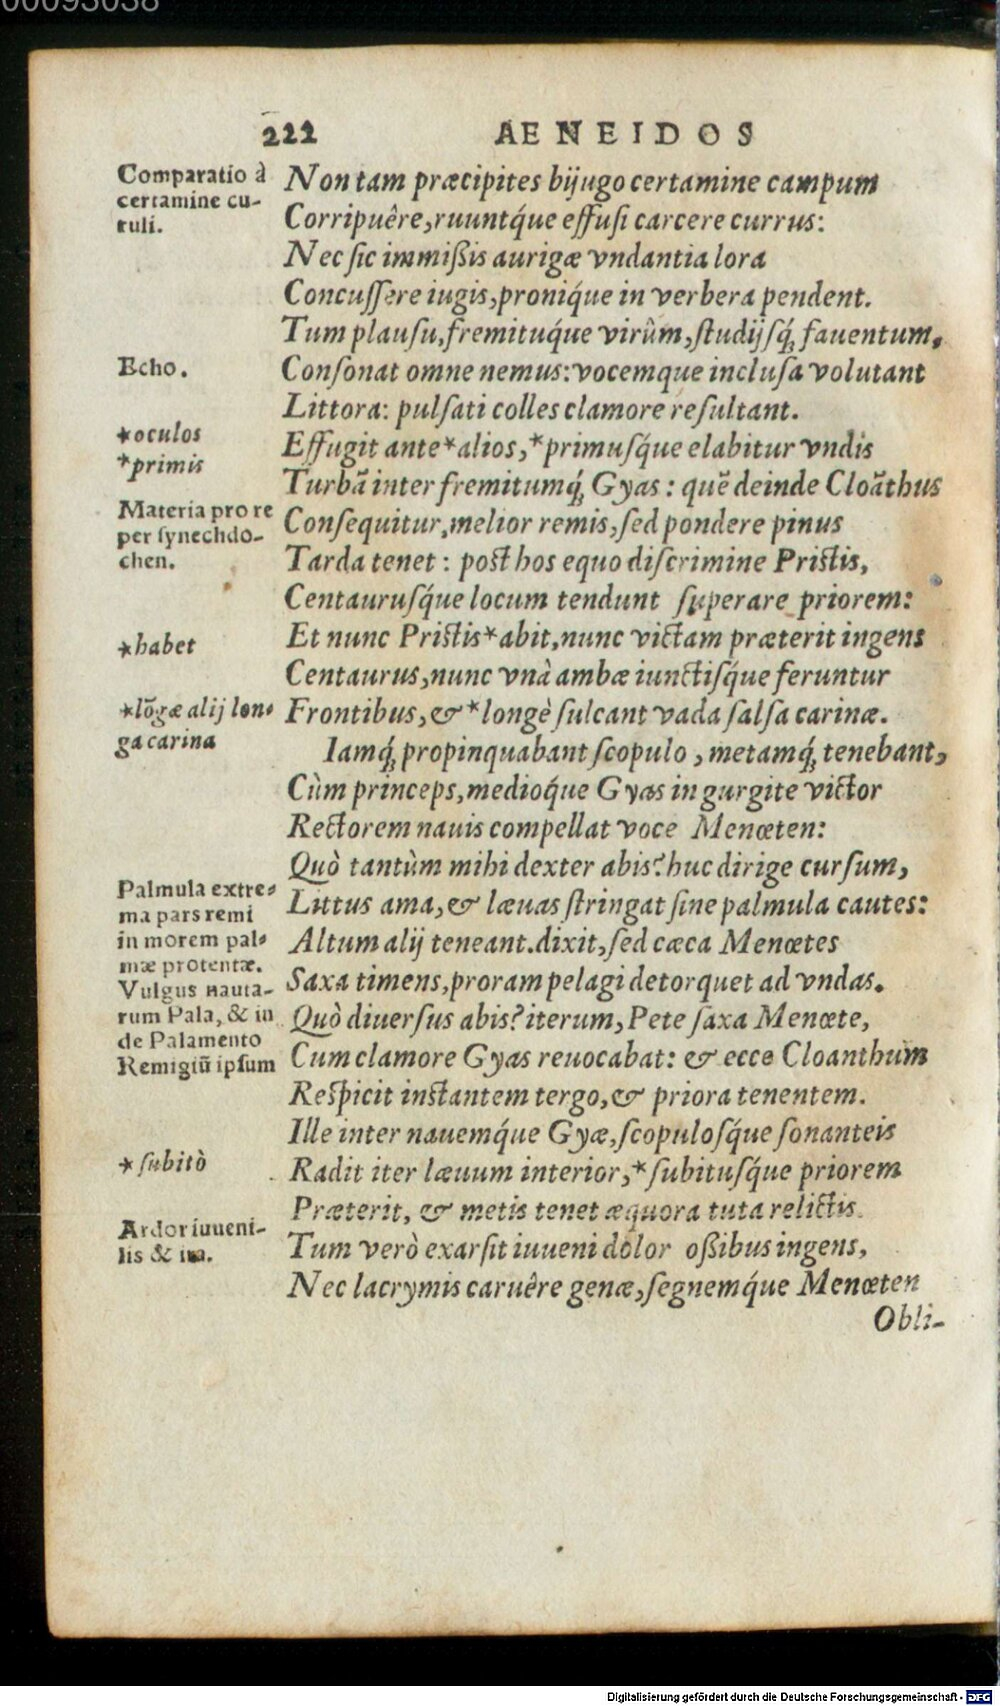 00093038
222 AENEIDOS
Comparatio à
certamine cu-
ruli.
Non tam præcipites bijugo certamine campum
Corripuêre, ruuntq́ue effuſi carcere currus:
Nec ſic immißis aurigæ vndantia lora
Concuſſere iugis, proniq́ue in verbera pendent.
Tum plauſu, fremituq́ue virûm, ſtudijſq́; fauentum,
Echo.
Conſonat omne nemus: vocemque incluſa volutant
Littora: pulſati colles clamore reſultant.
*oculos
Effugit ante*alios,*primuſq́ue elabitur vndis
*primis
Turbā inter fremitumq́; Gyas: quē deinde Cloāthus
Materia pro re
per ſynechdo-
chen.
Conſequitur, melior remis, ſed pondere pinus
Tarda tenet: poſt hos equo diſcrimine Priſtis,
Centauruſq́ue locum tendunt ſuperare priorem:
*habet
Et nunc Priſtis*abit, nunc victam præterit ingens
Centaurus, nunc vnà ambæ iunctiſq́ue feruntur
*lōgæ alij lon-
ga carina
Frontibus, &*longè ſulcant vada ſalſa carinæ.
Iamq́; propinquabant ſcopulo, metamq́; tenebant,
Cùm princeps, medioq́ue Gyas in gurgite victor
Rectorem nauis compellat voce Menœten:
Quò tantùm mihi dexter abis? huc dirige curſum,
Palmula extre-
ma pars remi
in morem pal-
mæ protentæ.
Vulgus nauta-
rum Pala, & in
de Palamento
Remigiū ipſum
Littus ama, & læuas ſtringat ſine palmula cautes:
Altum alij teneant. dixit, ſed cæca Menœtes
Saxa timens, proram pelagi detorquet ad vndas.
Quò diuerſus abis? iterum, Pete ſaxa Menœte,
Cum clamore Gyas reuocabat: & ecce Cloanthum
Reſpicit inſtantem tergo, & priora tenentem.
Ille inter nauemq́ue Gyæ, ſcopuloſq́ue ſonanteis
*ſubitò
Radit iter læuum interior,*ſubituſq́ue priorem
Præterit, & metis tenet æquora tuta relictis.
Ardor iuueni-
lis & ira.
Tum verò exarſit iuueni dolor oßibus ingens,
Nec lacrymis caruêre genæ, ſegnemq́ue Menœten
Obli-
Digitalisierung gefördert durch die Deutsche Forschungsgemeinschaft - DFG